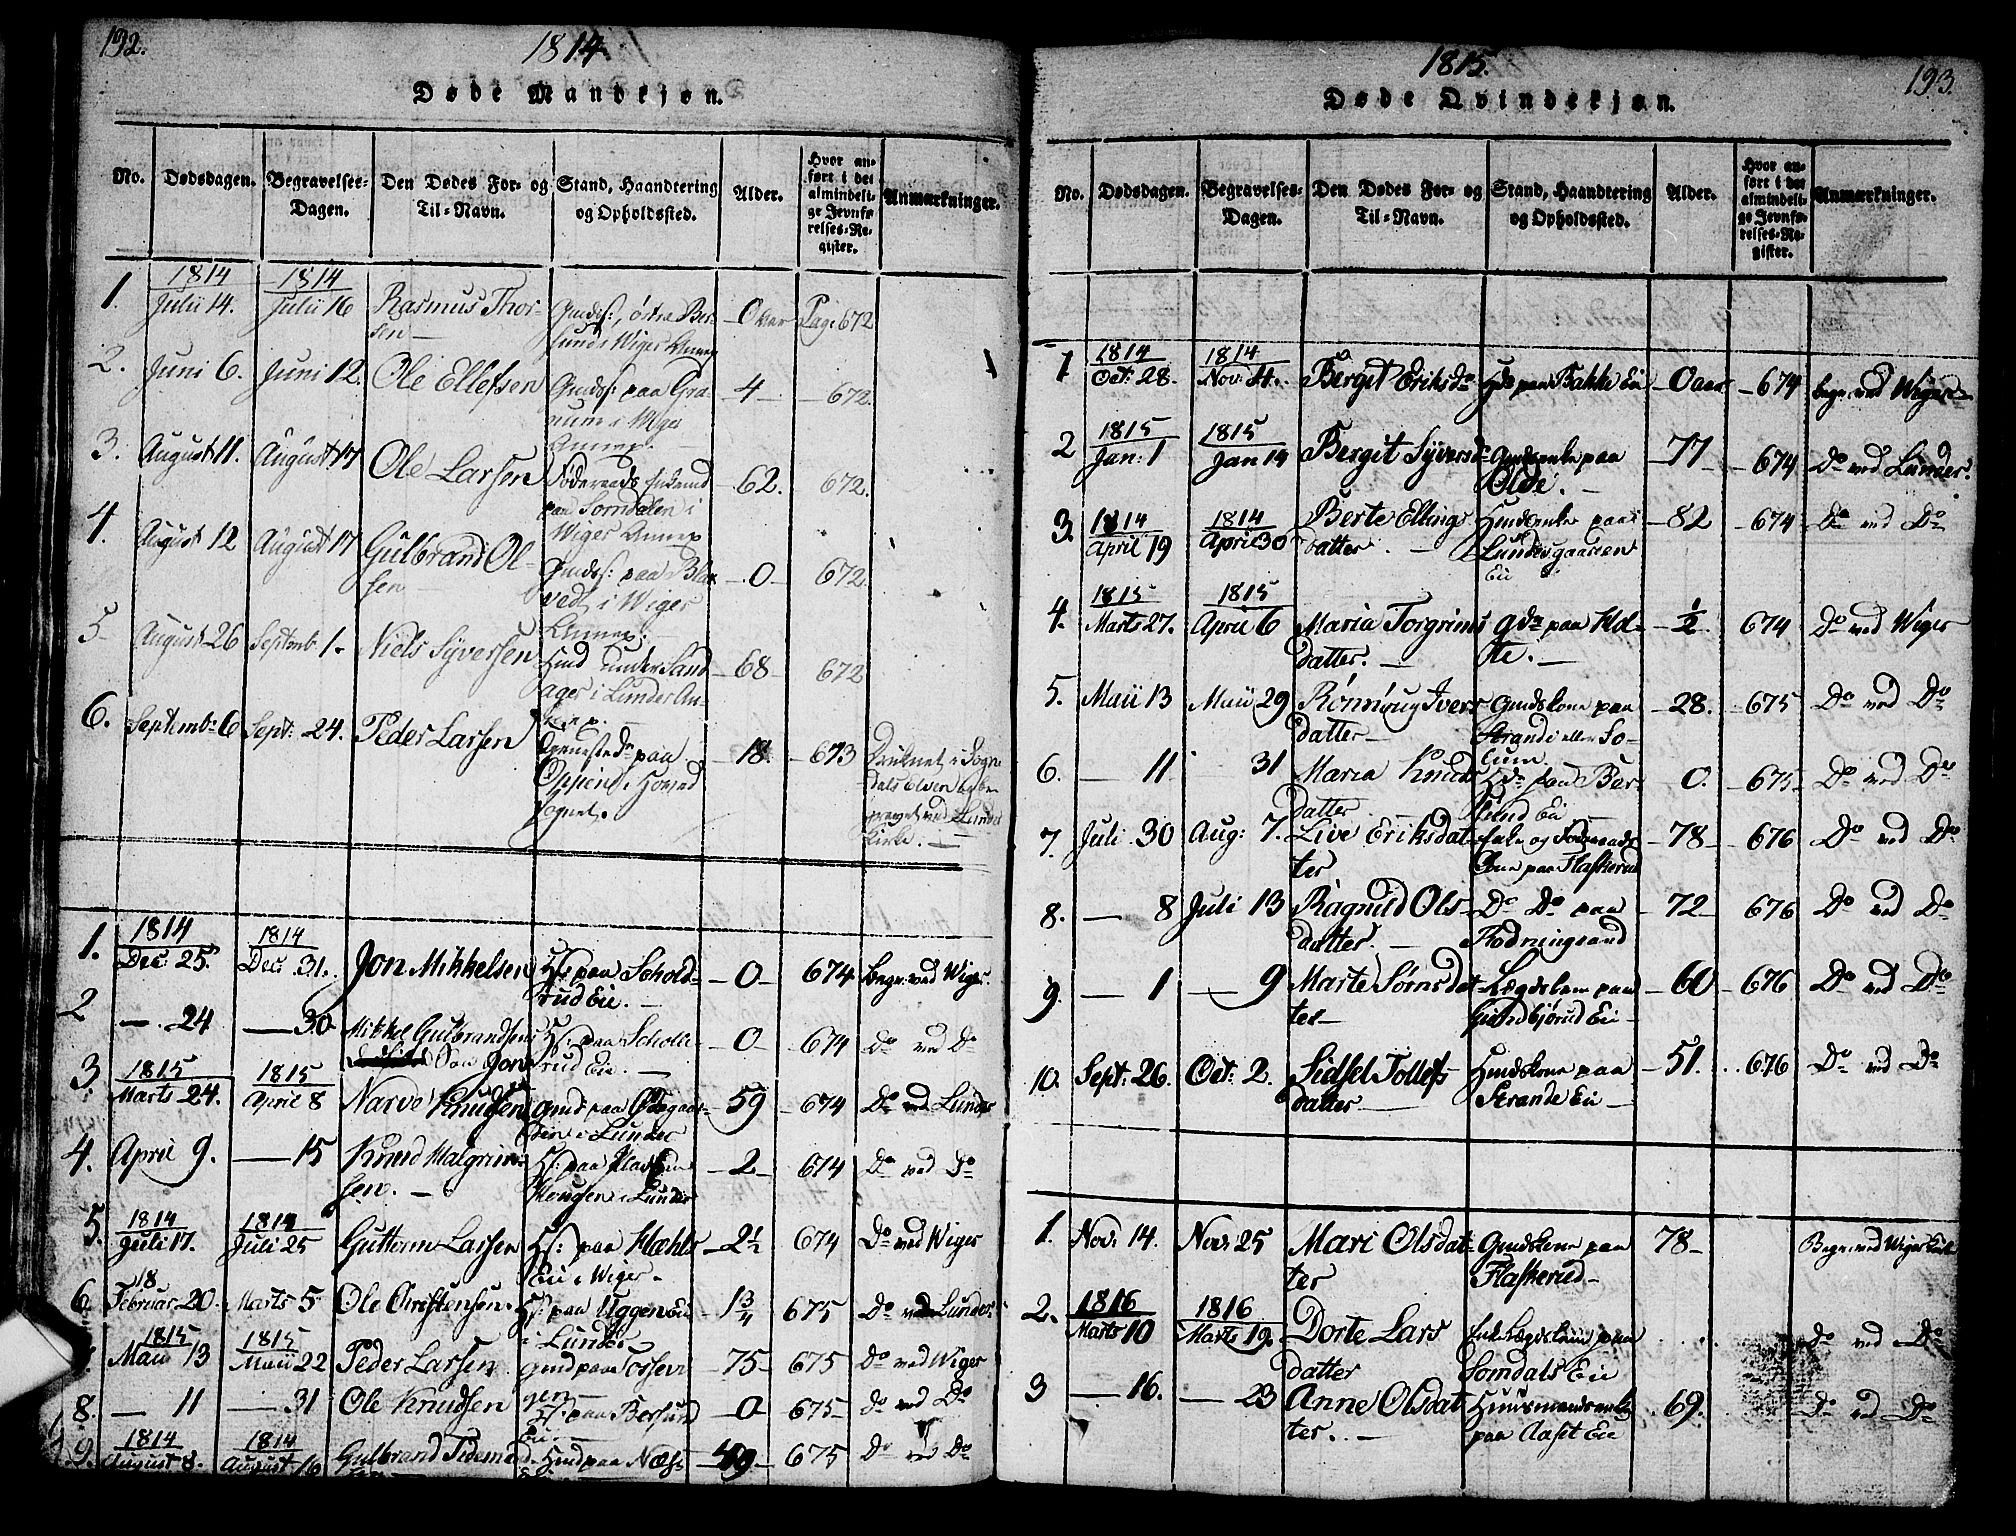 192.
1814.
Døde Mandkjøn.
No.
Dødsdagen.
Begravelses-
Dagen.
Den Dødes For- og
Til-Navn.
Stand, Haandtering
og Opholdssted.
Alder.
Hvor an-
ført i det
almindeli-
ge Jevnfø
relses-Re-
gister.
Anmærkninger.
1. 1814 Julii 14. 1814 Julii 16 Rasmus Thor-
sen Gmds: østre Ber-
sund i Wiger Annex 0 aar Pag: 672
2. Juni 6. Juni 12. Ole Ellefsen Gmds: paa Gra-
num i Wiger
Annex. 4 672.
3. August 11. August 17 Ole Larsen
paa Somdalen i
Wiger Annex 62. 672.
4. August 12 August 17 Gulbrand Ol-
sen Gmds: paa
i Wiger
Annex. 0 672.
5 August 26 Septemb. 1. Niels Syversen Hmd under Sand-
ager i Lunder An-
nex. 68 672
6. Septemb: 6 Sept: 24. Peder Larsen Tjenested: paa
Oppen i Hoved
Sognet. 18 673 Druknet i Sogne
dals Elven og be-
gravet ved Lunder
Kirke.
1. 1814 Dec: 25. 1814 Dec: 31. Jon Mikkelsen Hs: paa Schold-
rud Eie. 0 674 begr: ved Wiger
2 24 30 Mikkel Gulbrandsens
Søn Jon Hs: paa Scholle-
rud Eie. 0 674 Do ved Do
3. 1815 Marts 24. 1815 April 8 Narve Knudsen Gmd paa Ødegaar-
den i Lunder 59 674 Do ved Lunder
4. April 9. 15 Knud Halgrim-
sen. Hs: paa
Haugen i Lunder 2 674 Do ved Do
5. 1814 Juli 17. 1814 Juli 25 Guttorm Larsen Hs: paa Hæhls
Eie i Wiger 2½ 674 Do ved Wiger
6. 18 Februar 20. Marts 5 Ole Christensen Hs: paa Uggen Eie
i Lunder 1¾ 675 Do ved Lunder
1815 Maii 13 1815 Maii 22 Peder Larsen Gmd paa Tossevi-
gen 75 675 Do ved Wiger
8. 11 31 Ole Knudsen Hs: paa Bersund
Eie. 0 675 Do ved Do
9. 1814 August 8. 1814 August 16 Gulbrand Tidemand Hmd paa Næss 49 675 Do ved Do
193.
1815.
Døde Qvindekjøn.
No.
Dødsdagen.
Begravelses-
Dagen.
Den Dødes For- og
Til-Navn.
Stand, Haandtering
og Opholdssted.
Alder.
Hvor an-
ført i det
almindeli-
ge Jevnfø-
relses-Re-
gister.
Anmærkninger.
1 1814 Oct: 28. 1814 Nov: 4. Bergit Eriksdr Hds paa Bakke Eie 0 aar 674 begr: ved Wiger
2 1815 Jan: 1 1815 Jan 14 Bergit Syversd: Gmdsenke paa
Olde. 77 674 Do ved Lunder.
3. 1814 April 19 1814 April 30 Berte Ellings-
datter. Hmdsenke paa
Lundesgaarden
Eie 82 674 Do ved Do
4. 1815 Marts 27. 1815 April 6 Maria Torgrims
datter. Gdr paa Hol-
te. ½ 674 Do ved Wiger
5. Maii 13 Maii 29 Rønnoug Ivers
datter Gmdskone paa
Strande eller So-
lum. 28. 675 Do ved Do
6. 11 31 Maria Knuds
datter Hdr paa Ber-
sund Eie 0. 675 Do ved Do
7. Juli 30 Aug: 7. Live Eriksdat-
ter Enke og Føderaads
Kone paa Flaskerud 78 676 Do ved Do
8. 8 Juli 13 Ragnild Ols-
datter. Do Do paa
Rodningsand 72 676 Do ved Do
9. 1 9 Marte Sørnsdat-
ter Lægdslem paa
Gundbjørud Eie 60 676 Do ved Do
10. Sept: 26. Oct: 2. Sidsel Tollefs
datter Hmdskone paa
Strande Eie 51. 676 Do ved Do
1. Nov: 14. Nov: 25 Mari Olsdat-
ter Gmdskone paa
Flaskerud 78 Begr: ved Wiger Kirke
2. 1816 Marts 10 1816 Marts 19. Dorte Lars
datter Enke Lægdslem paa
Somdals Eie Do ved Do
3 16. 23 Anne Olsdat-
ter. Huusmandsenke
paa Aaset Eie 69. Do ved Do